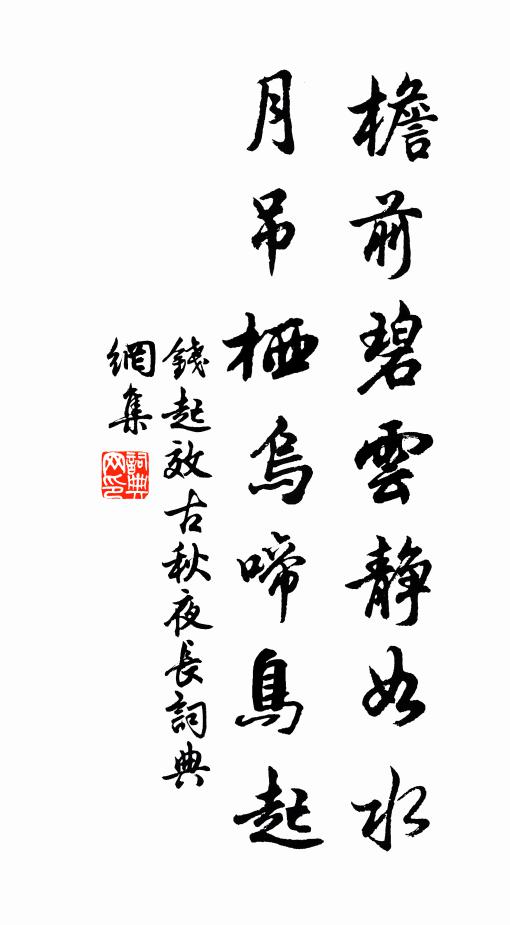 檐前碧雲靜如水
月吊栖烏啼鳥起
錢起效古秋夜長詞典
網集
詞典網印